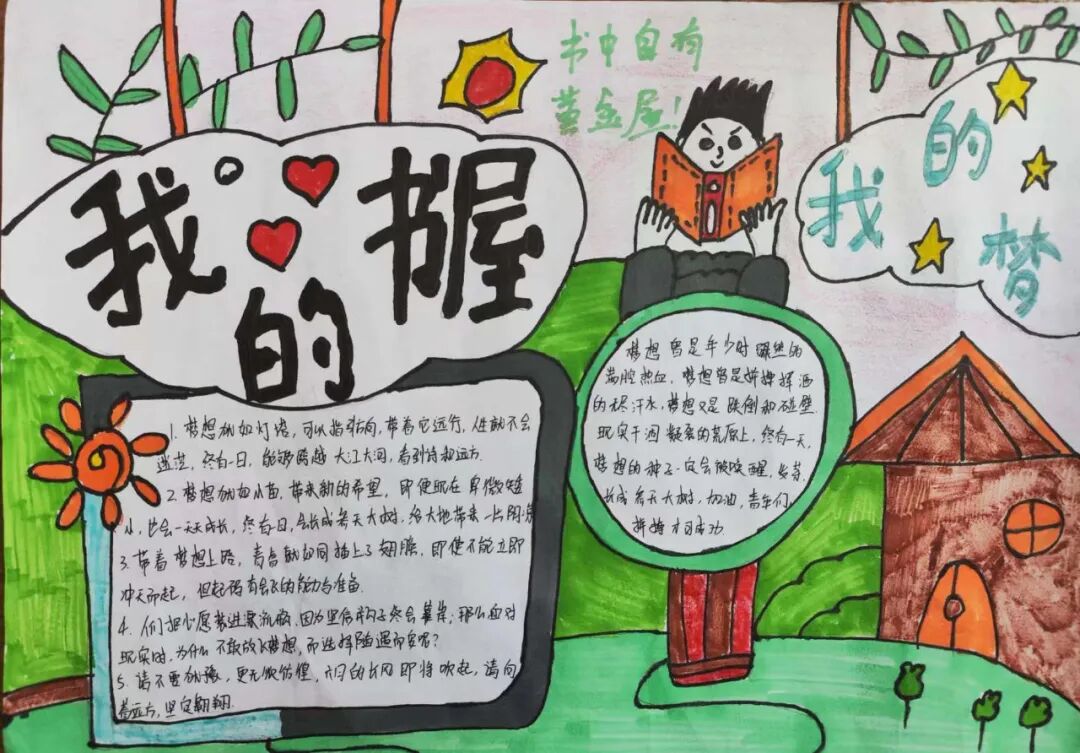 书中自有
黄金屋!
我的书屋
我的梦
1. 梦想犹如灯塔,可以指引方向,带着它远行,人生就不会
迷茫,终有一日,能够跨越大江大河,看到诗和远方.
2. 梦想犹如小苗,带来新的希望,即便现在卑微矮
小,也会一天天成长,终有日,会长成参天大树,给大地带来一片阴凉
3. 带着梦想上路,青春就如同插上了翅膀,即使不能立即
冲天而起,但起码有会飞的能力与准备.
4. 人们把心愿装进漂流瓶,因为坚信种子终会靠岸;那么面对
现实时,为什么不敢放飞梦想,而选择随遇而安呢?
5. 请不要犹豫,更无须彷徨,六月的长风即将吹起,请向
着远方,坚定翱翔.
梦想曾是年少时骤然的
满腔热血,梦想曾是拼搏挥洒
的无尽汗水,梦想又是跌倒和碰壁.
现实干涸凝裂的荒原上,终有一天,
梦想的种子一定会被唤醒,发芽.
长成参天大树,加油,青年们
拼搏才可成功.